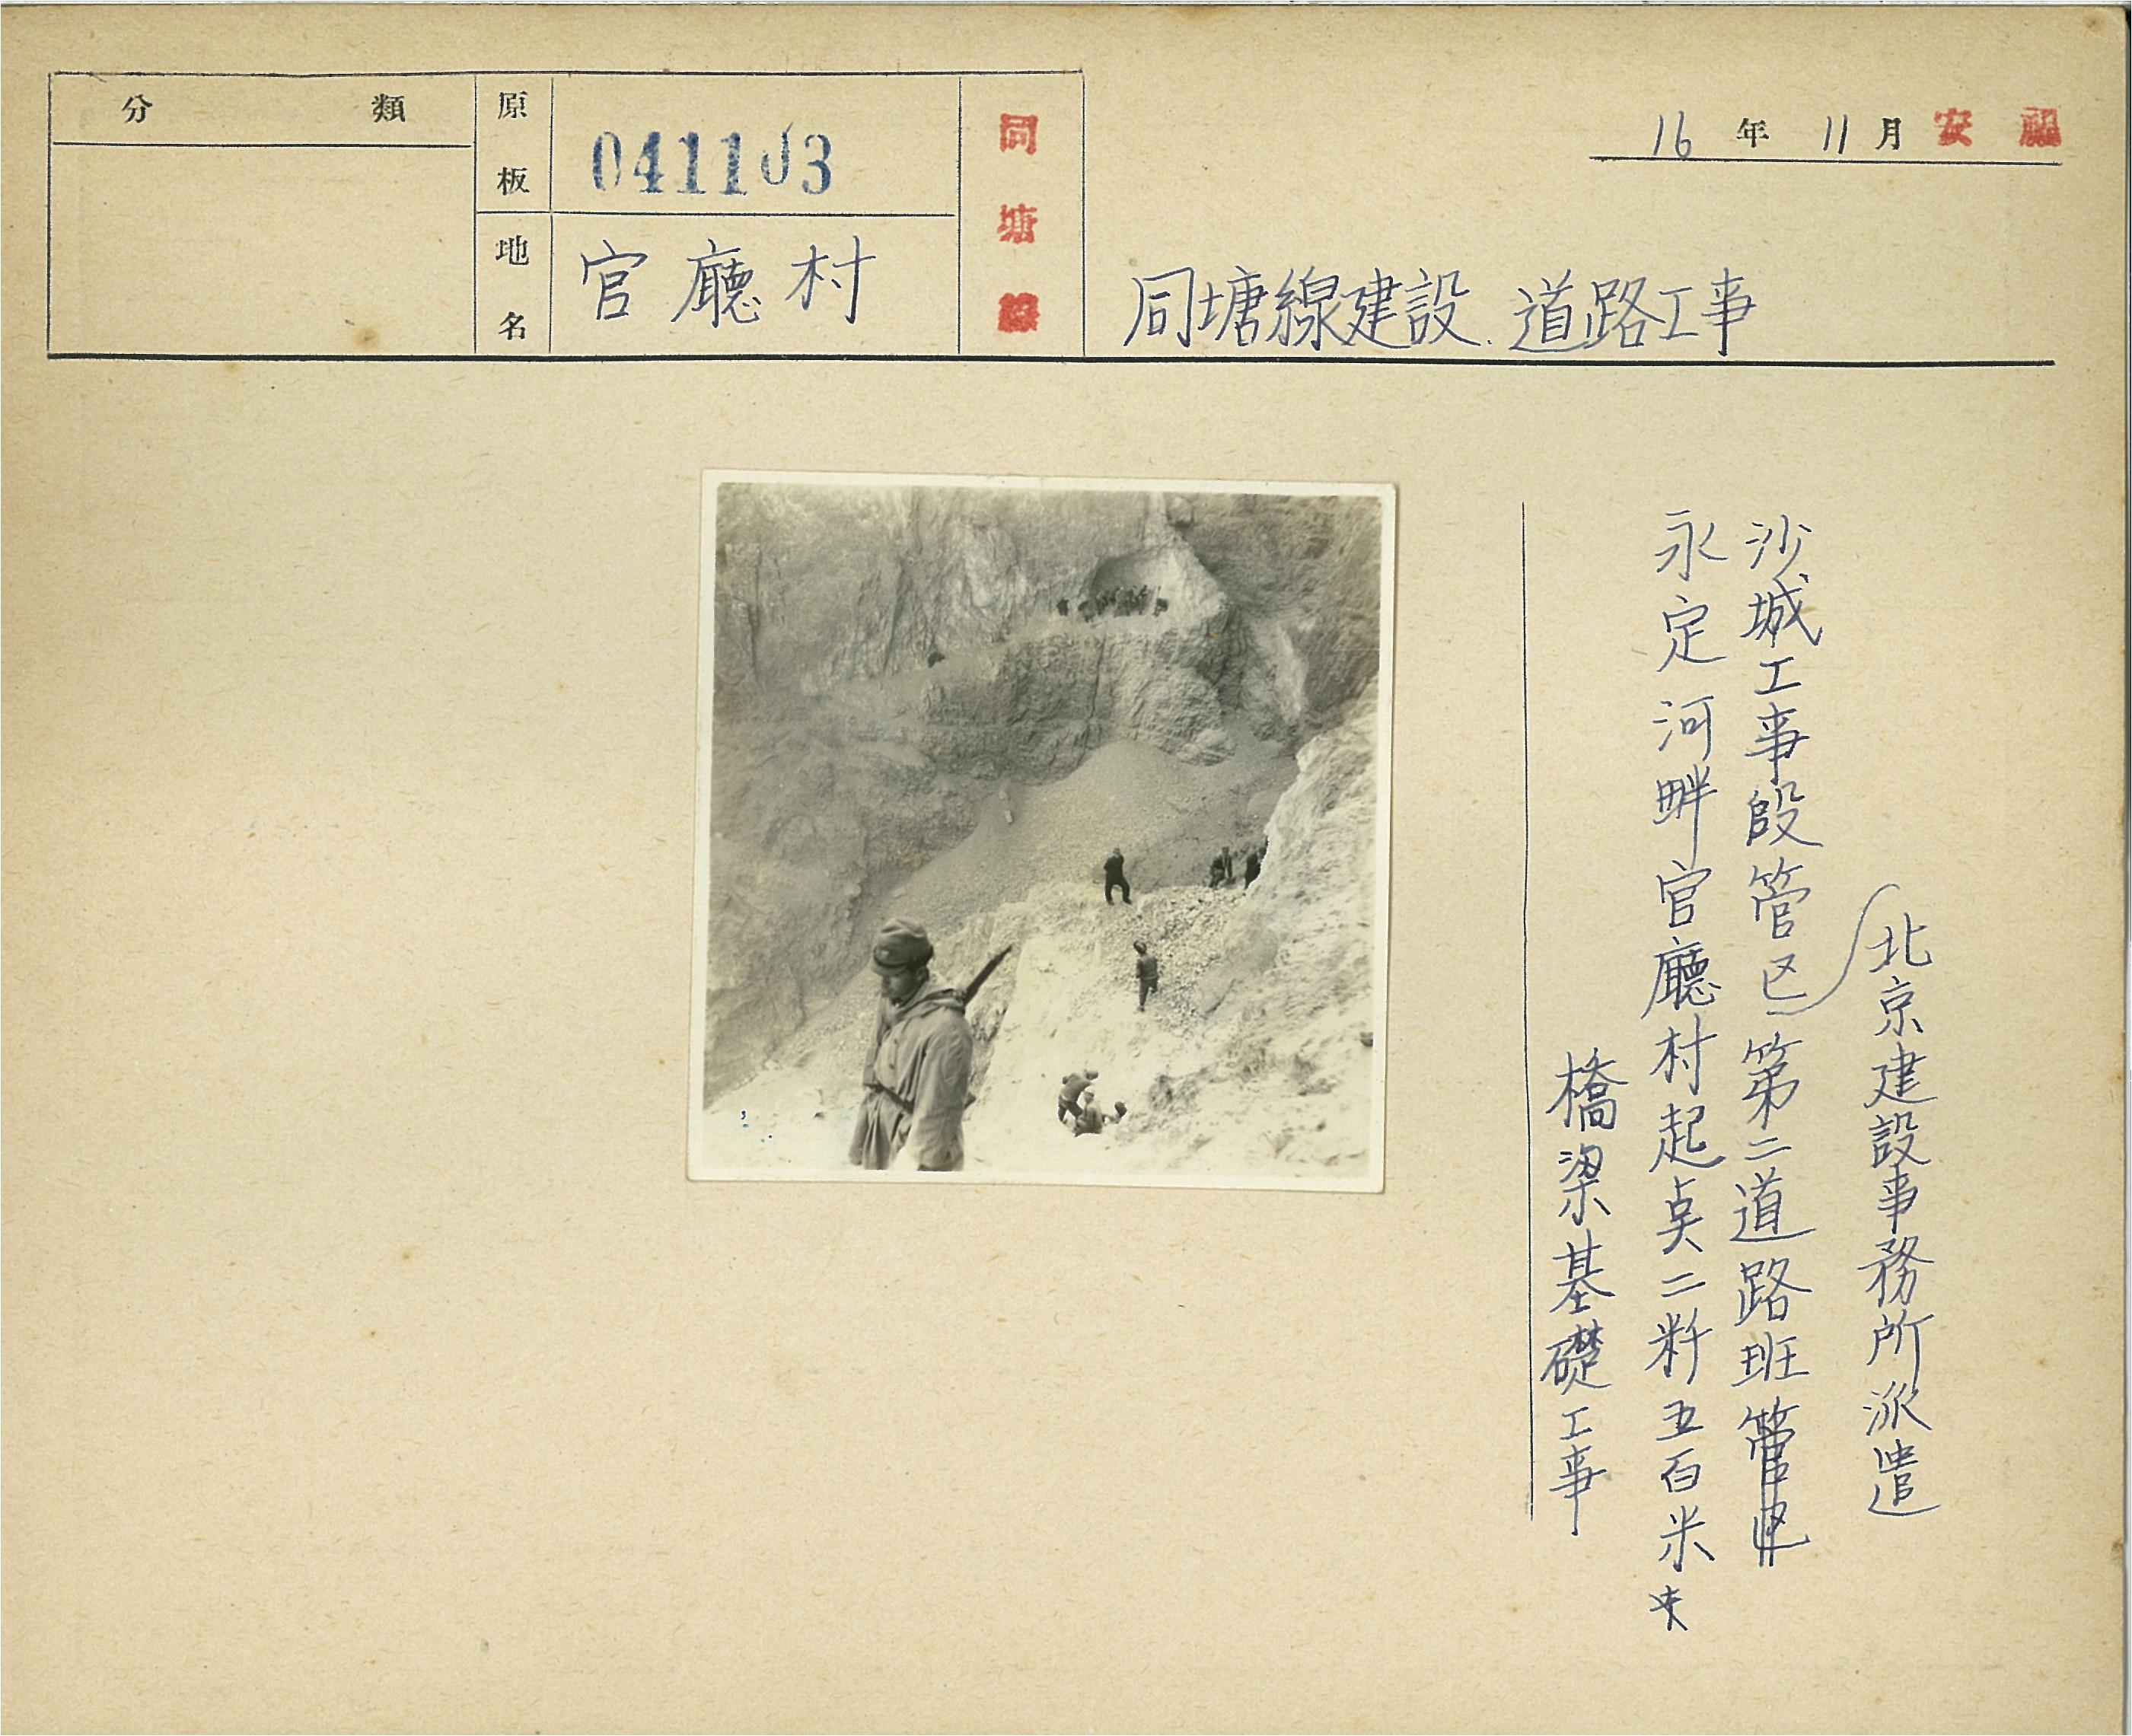 分類
原板
041103
地名
官廳村
同塘線
16年11月
安福
同塘線建設.道路工事
北京建設事務所派遣
沙城工事段管区第二道路班
永定河畔官廳村起点二粁五百米
橋梁基礎工事